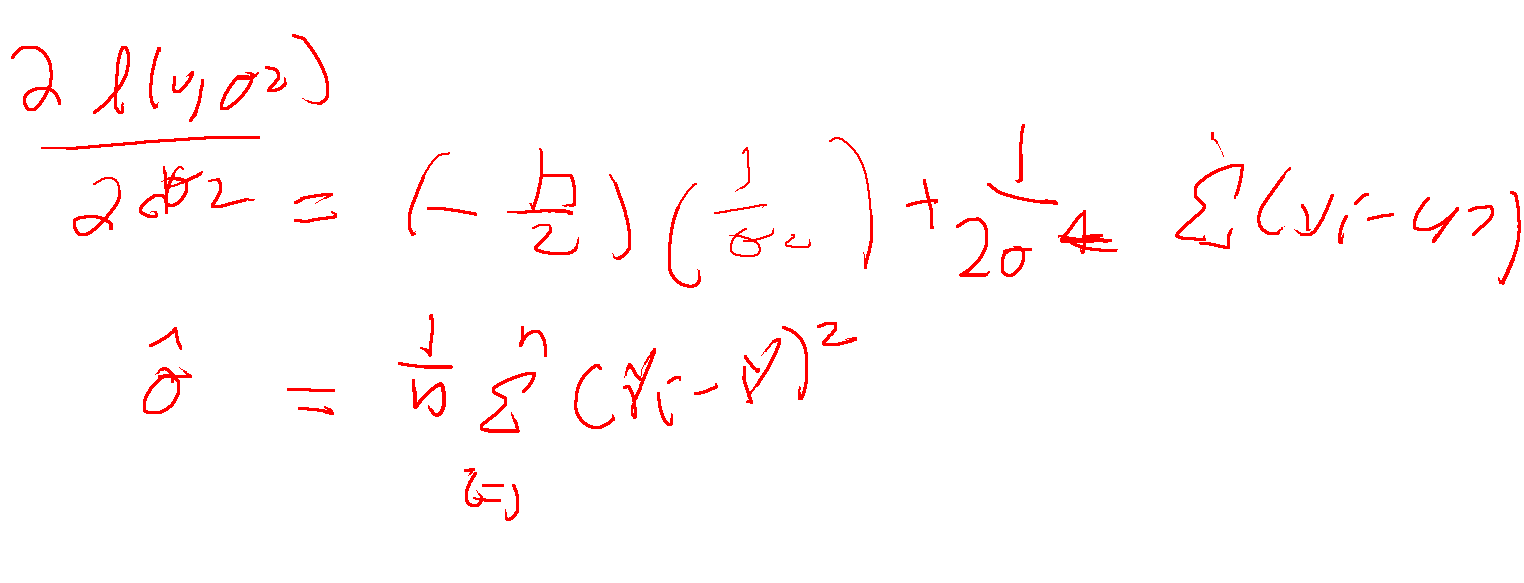 ∂ℓ(μ,σ²)/∂σ² = (-n/2)(1/σ²) + 1/2σ⁴ Σ(yi-μ)
σ̂ = 1/n Σⁿᵢ₌₁ (yi-ȳ)²